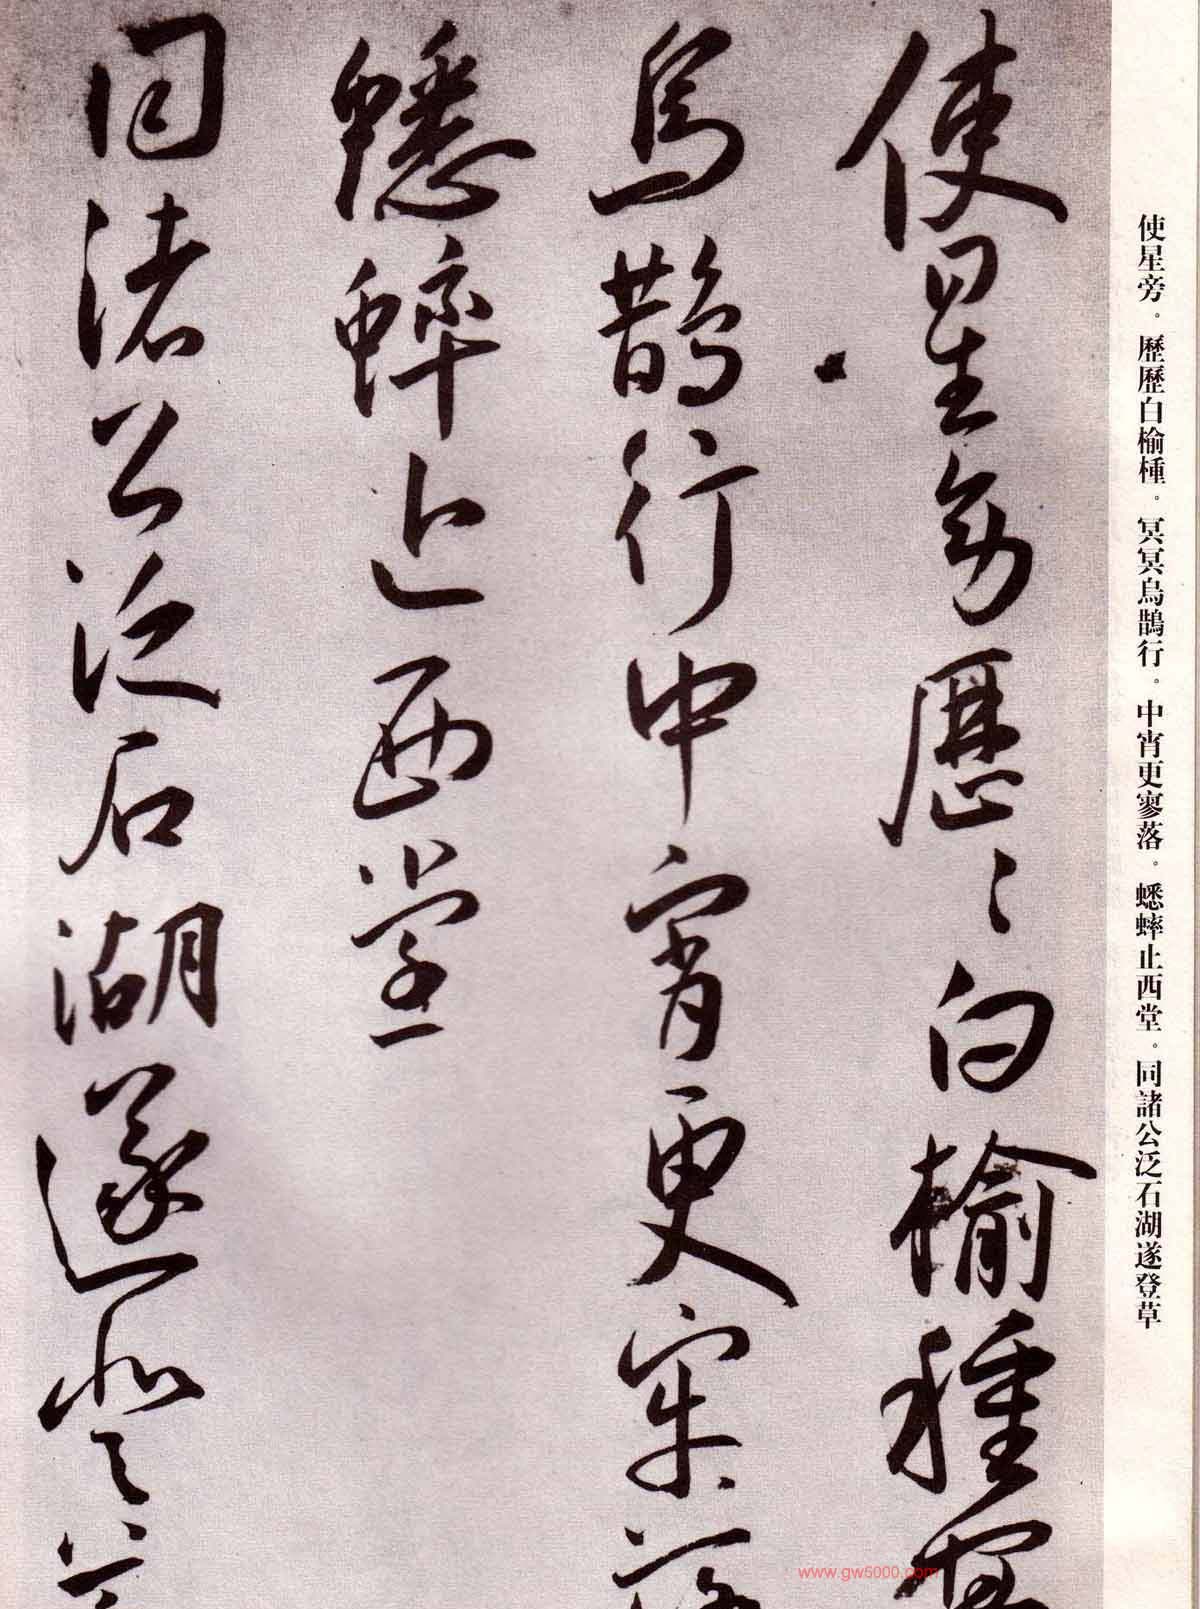 使星旁。歷歷白榆種。冥冥烏鵲行。中宵更寥落。蟋蟀止西堂。同諸公泛石湖遂登草
使星旁歷〻白榆種冥
烏鵲行中宵更寥落
蟋蟀止西堂
同諸公泛石湖遂登草
www.gw5000.com